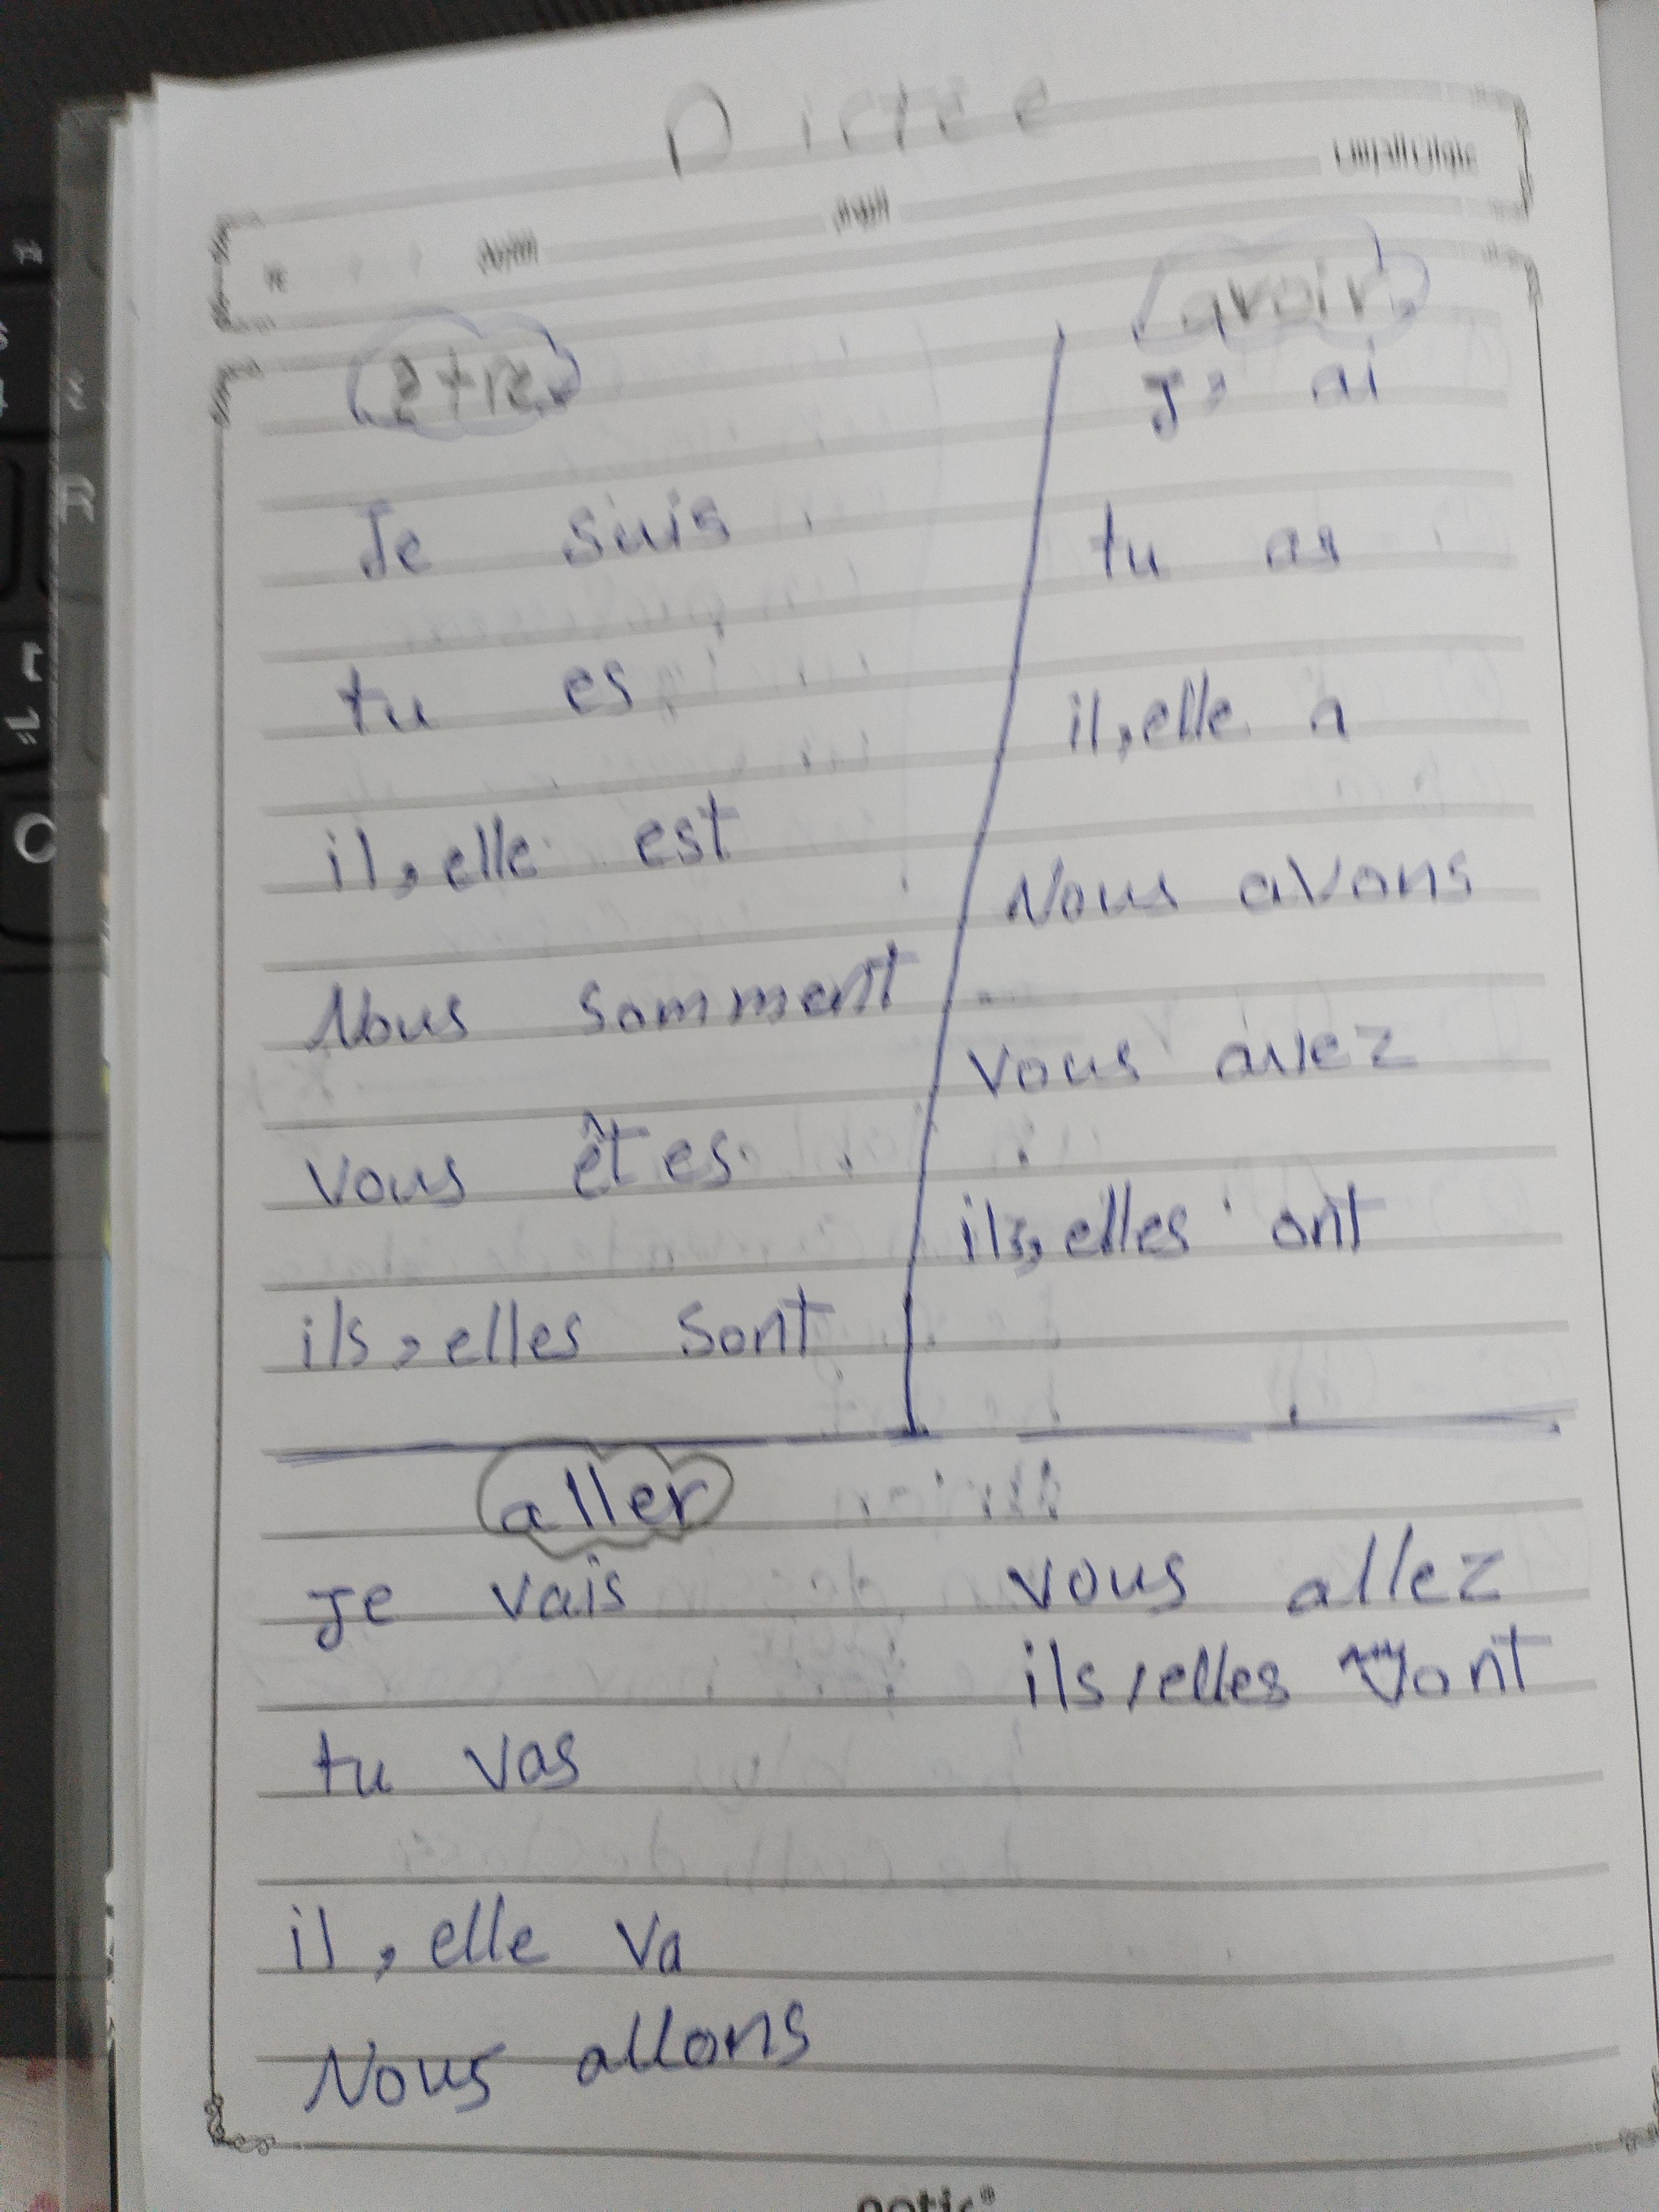 Dictée
être
Je suis
tu es
il, elle est
Nous somment
vous êtes
ils, elles sont
avoir
J' ai
tu as
il, elle a
Nous avons
vous avez
ils, elles ont
aller
Je vais
tu vas
il, elle va
Nous allons
vous allez
ils, elles vont